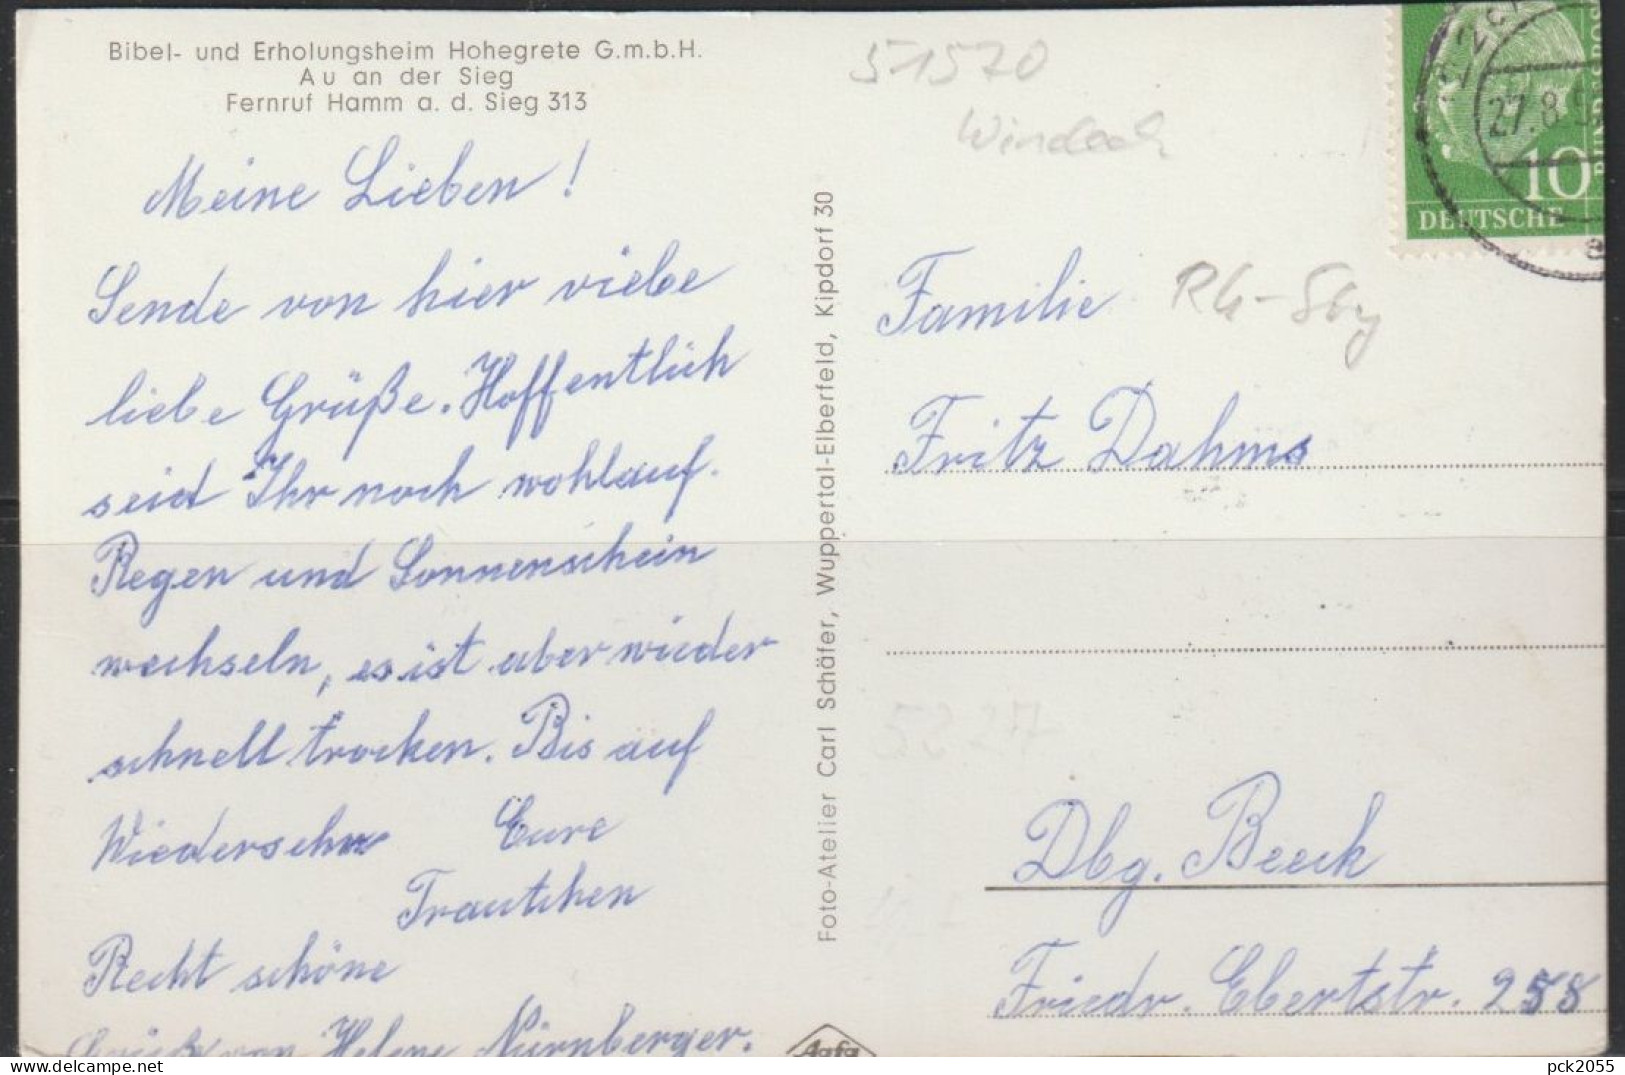 Bibel- und Erholungsheim Hohegrete G.m.b.H.
Au an der Sieg
Fernruf Hamm a. d. Sieg 313
Meine Lieben!
Sende von hier viele
liebe Grüße. Hoffentlich
seid Ihr noch wohlauf.
Regen und Sonnenschein
wechseln, es ist aber wieder
schnell trocken. Bis auf
Wiedersehn Eure
Trautchen
Recht schöne
Grüße von Helene Nürnberger.
Foto-Atelier Carl Schäfer, Wuppertal-Elberfeld, Kipdorf 30
Agfa
51570
Windeck
27.8.5
10
DEUTSCHE
BUNDESPOST
Familie
Rh-Sby
Fritz Dahms
5227
Dbg. Beeck
Friedr. Ebertstr. 258
pck2055